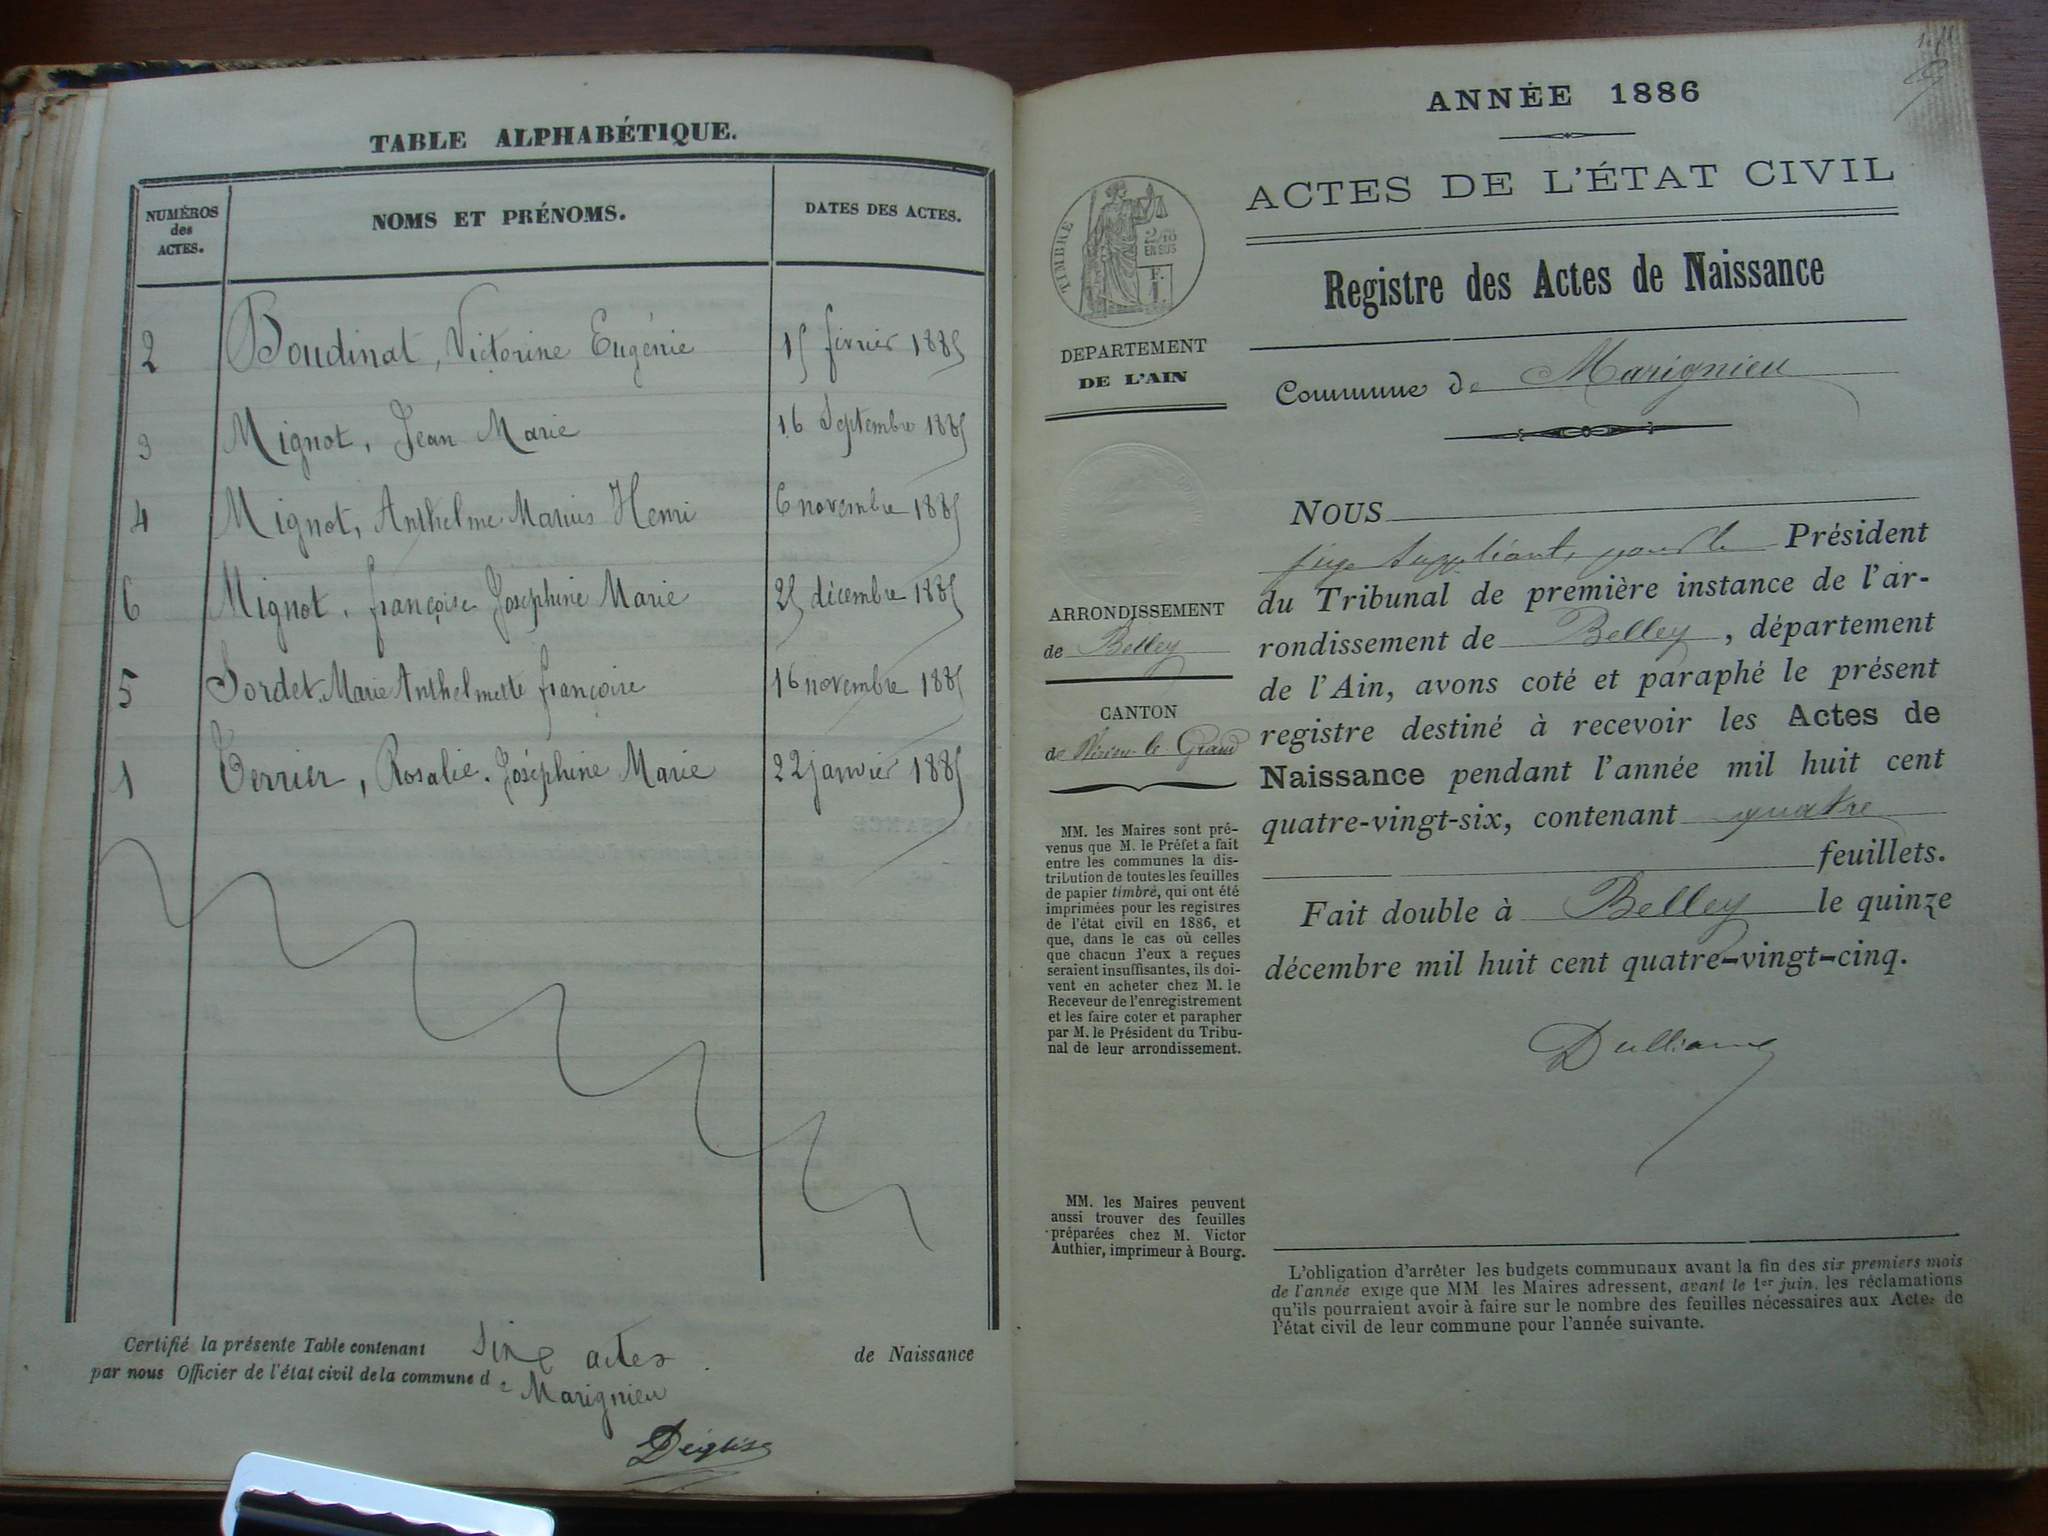 TABLE ALPHABÉTIQUE.
NUMÉROS des ACTES.
NOMS ET PRÉNOMS.
DATES DES ACTES.
2 Boudinat, Victorine Eugénie 15 février 1885
3 Mignot, Jean Marie 16 Septembre 1885
4 Mignot, Anthelme Marius Henri 6 novembre 1885
6 Mignot, françoise Joséphine Marie 25 décembre 1885
5 Sordet Marie Anthelmette françoise 16 novembre 1885
1 Terrier, Rosalie Joséphine Marie 22 janvier 1885
Certifié la présente Table contenant Six actes de Naissance
par nous Officier de l'état civil de la commune de Marignieu
ANNÉE 1886
ACTES DE L'ÉTAT CIVIL
Registre des Actes de Naissance
Commune de Marignieu
TIMBRE
2/10
EN SUS
DEPARTEMENT
DE L'AIN
ARRONDISSEMENT
de Belley
CANTON
de Virieu le Grand
MM. les Maires sont pré-
venus que M. le Préfet a fait
entre les communes la dis-
tribution de toutes les feuilles
de papier timbré, qui ont été
imprimées pour les registres
de l'état civil en 1886, et
que, dans le cas où celles
que chacun d'eux a reçues
seraient insuffisantes, ils doi-
vent en acheter chez M. le
Receveur de l'enregistrement
et les faire coter et parapher
par M. le Président du Tribu-
nal de leur arrondissement.
MM. les Maires peuvent
aussi trouver des feuilles
préparées chez M. Victor
Authier, imprimeur à Bourg.
NOUS
juge suppléant, pour le Président
du Tribunal de première instance de l'ar-
rondissement de Belley, département
de l'Ain, avons coté et paraphé le présent
registre destiné à recevoir les Actes de
Naissance pendant l'année mil huit cent
quatre-vingt-six, contenant quatre
feuillets.
Fait double à Belley le quinze
décembre mil huit cent quatre-vingt-cinq.
L'obligation d'arrêter les budgets communaux avant la fin des six premiers mois
de l'année exige que MM les Maires adressent, avant le 1er juin, les réclamations
qu'ils pourraient avoir à faire sur le nombre des feuilles nécessaires aux Actes de
l'état civil de leur commune pour l'année suivante.